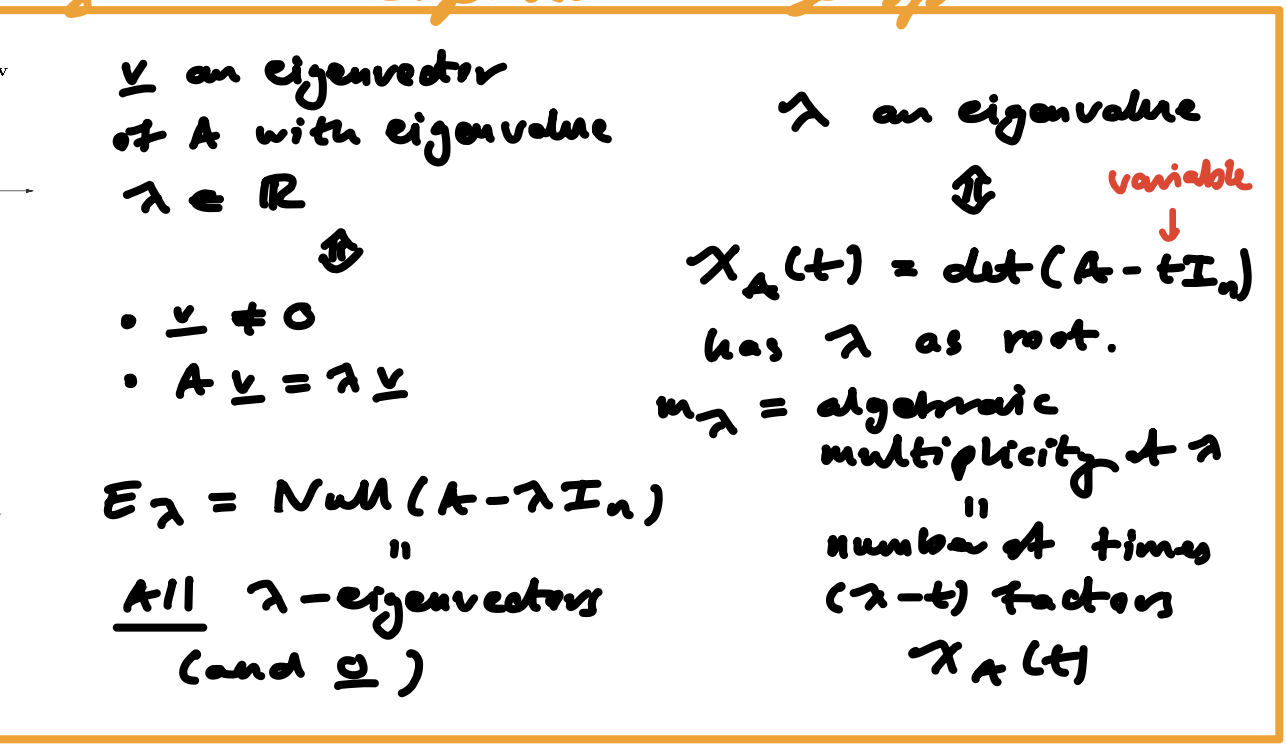 v
v an eigenvector
of A with eigenvalue
λ ∈ ℝ
⇕
• v ≠ 0
• A v = λ v
E_λ = Null(A - λI_n)
"
All λ-eigenvectors
(and 0)
λ an eigenvalue
⇕
variable
↓
χ_A(t) = det(A - tI_n)
has λ as root.
m_λ = algebraic
multiplicity of λ
"
number of times
(λ-t) factors
χ_A(t)